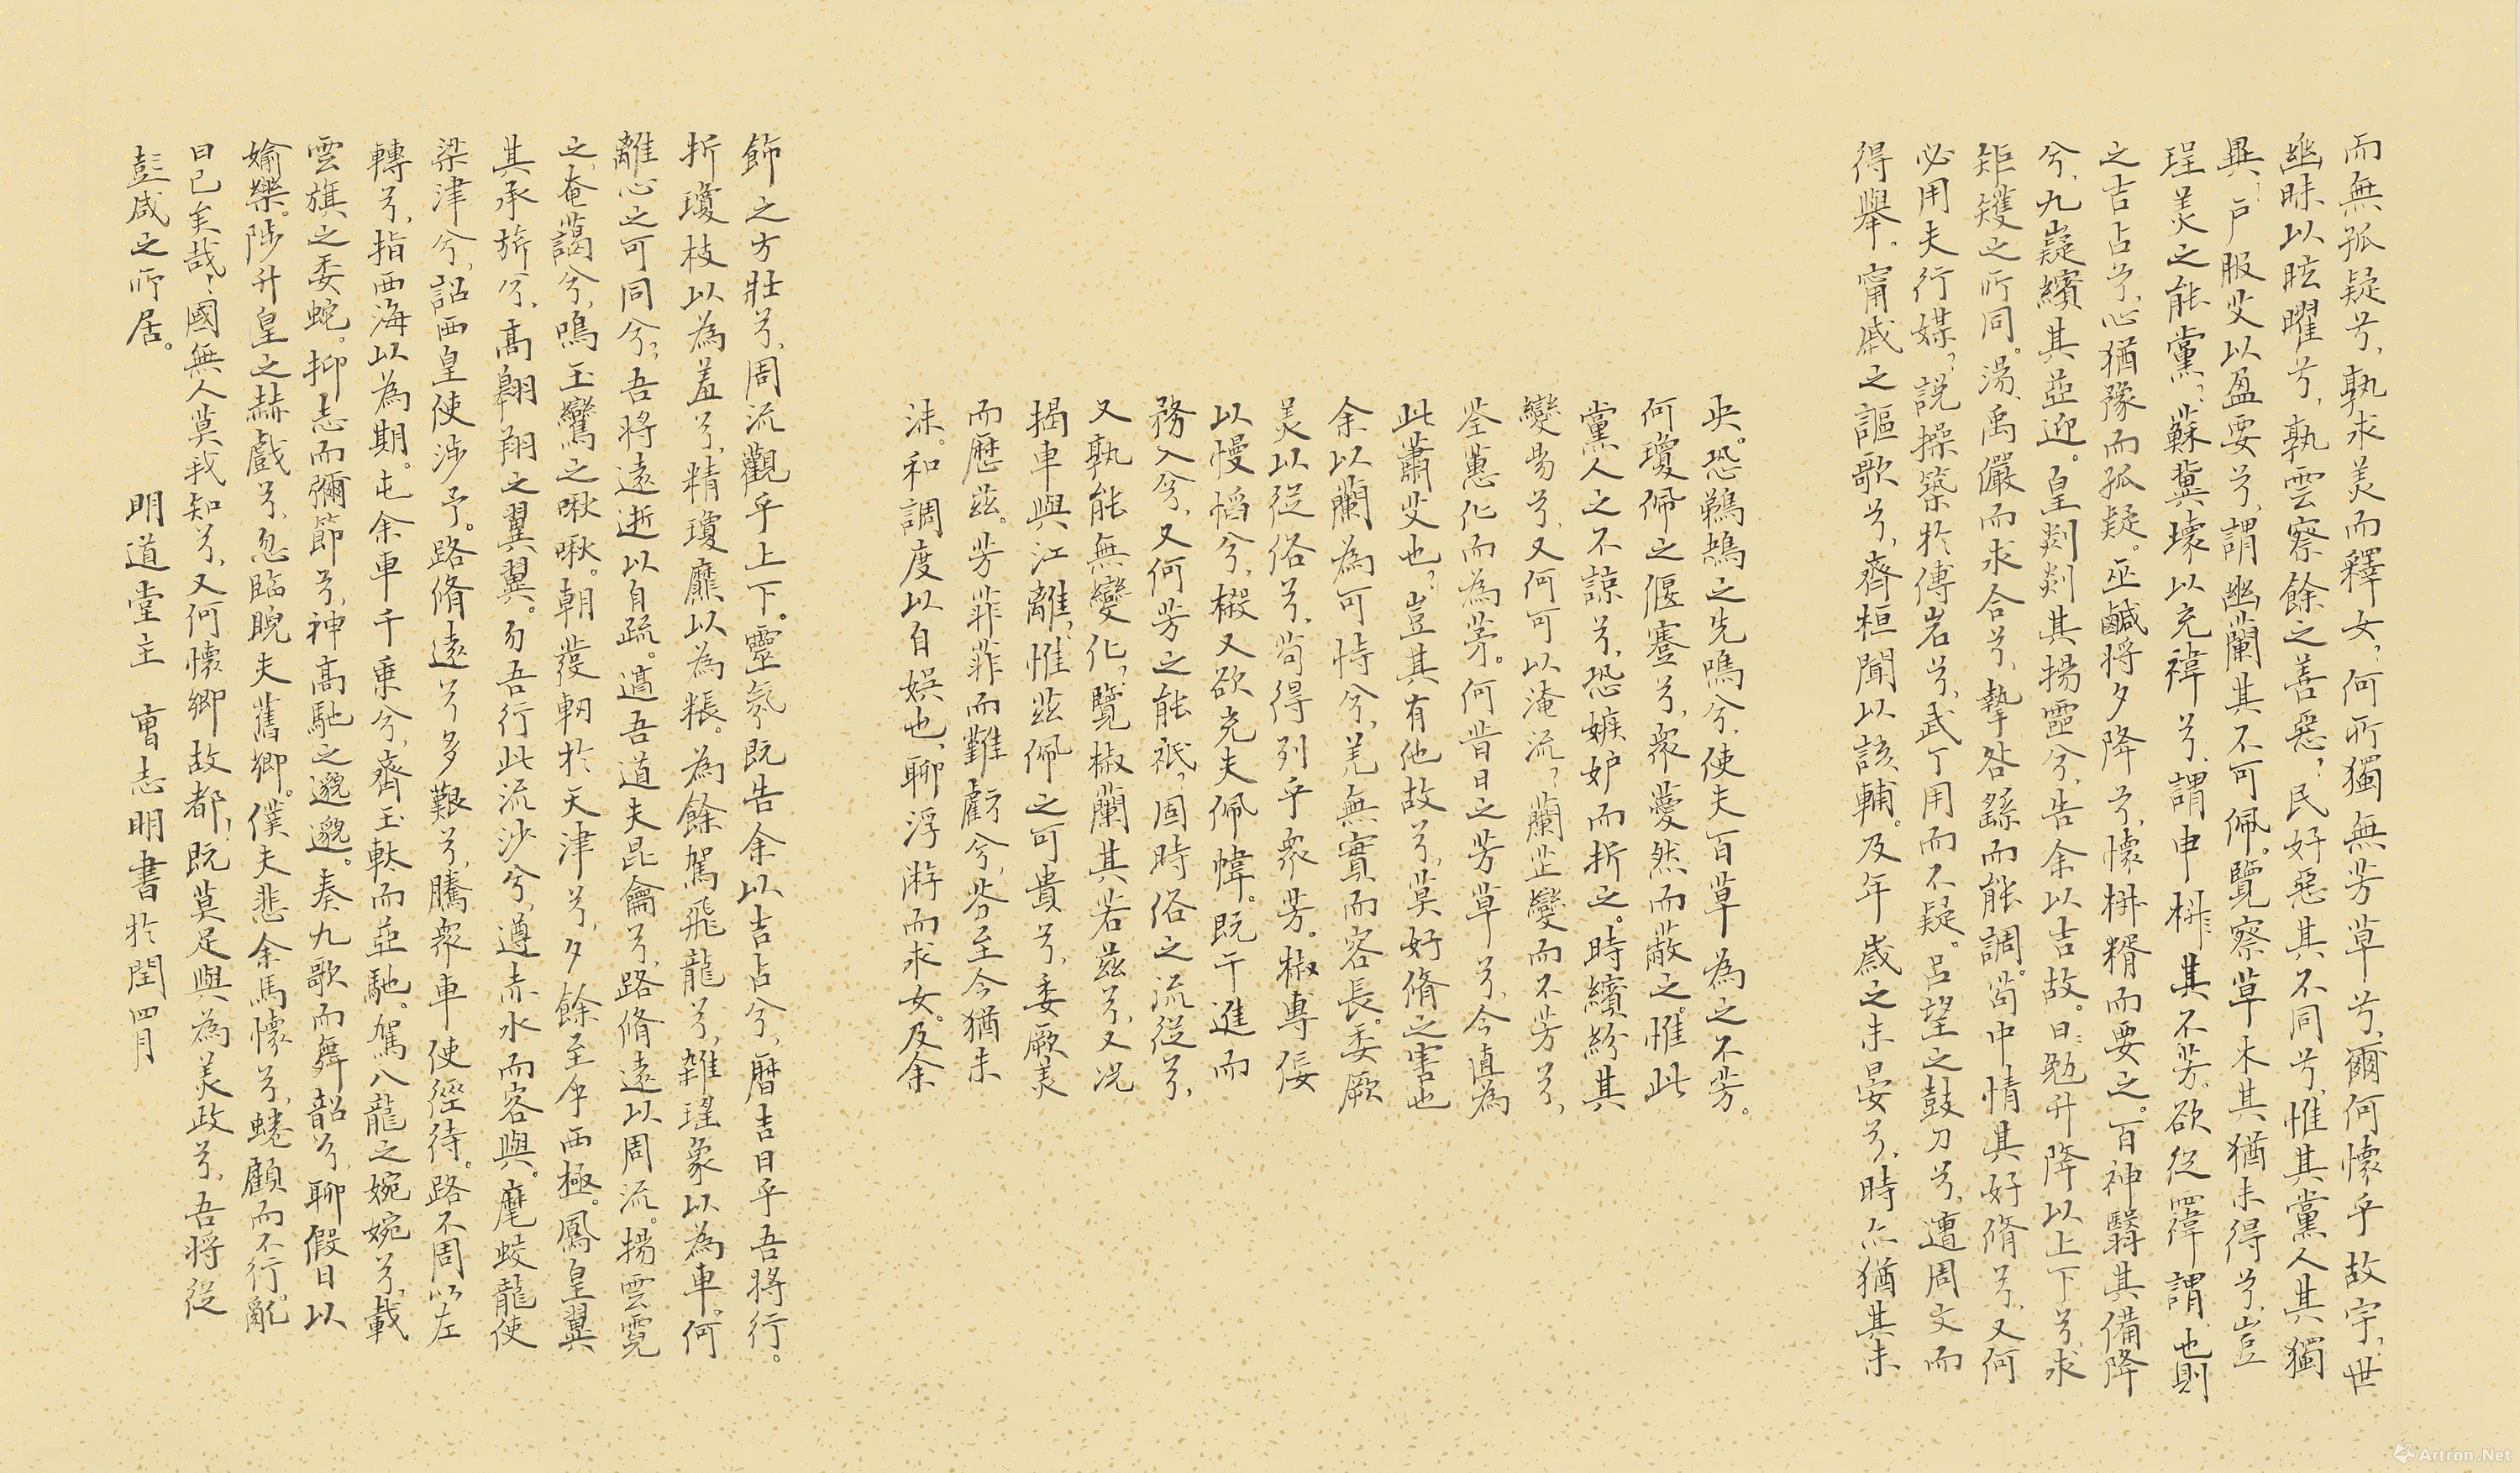 而無狐疑兮，孰求美而釋女？何所獨無芳草兮，爾何懷乎故宇？世
幽昧以眩曜兮，孰雲察餘之善惡？民好惡其不同兮，惟其黨人其獨
異！戶服艾以盈要兮，謂幽蘭其不可佩。覽察草木其猶未得兮，豈
珵美之能黨？蘇糞壤以充褘兮，謂申椒其不芳。欲從
之吉占兮，心猶豫而狐疑。巫鹹將夕降兮，懷椒糈而要之。百神翳其備降
兮，九嶷繽其並迎。皇剡剡其揚靈兮，告余以吉故。曰：勉升降以上下兮，求
矩矱之所同。湯、禹儼而求合兮，摯咎繇而能調。苟中情其好脩兮，又何
必用夫行媒？說操築於傅岩兮，武丁用而不疑。呂望之鼓刀兮，遭周文而
得舉。甯戚之謳歌兮，齊桓聞以該輔。及年歲之未晏兮，時亦猶其未
央。恐鵜鴂之先鳴兮，使夫百草為之不芳。
何瓊佩之偃蹇兮，衆薆然而蔽之。惟此
黨人之不諒兮，恐嫉妒而折之。時繽紛其
變易兮，又何可以淹流？蘭芷變而不芳兮，
荃蕙化而為茅。何昔日之芳草兮，今直為
此蕭艾也？豈其有他故兮，莫好脩之害也
余以蘭為可恃兮，羌無實而容長。委厥
美以從俗兮，苟得列乎衆芳。椒專佞
以慢慆兮，樧又欲充夫佩幃。既干進而
務入兮，又何芳之能祗？固時俗之流從兮，
又孰能無變化？覽椒蘭其若茲兮，又況
揭車與江離？惟茲佩之可貴兮，委厥美
而歷茲。芳菲菲而難虧兮，芬至今猶未
沬。和調度以自娛也，聊浮游而求女。及余
飾之方壯兮，周流觀乎上下。靈氛既告余以吉占兮，曆吉日乎吾將行。
折瓊枝以為羞兮，精瓊爢以為粻。為餘駕飛龍兮，雜瑤象以為車。何
離心之可同兮？吾將遠逝以自疏。邅吾道夫昆侖兮，路脩遠以周流。揚雲霓
之晻藹兮，鳴玉鸞之啾啾。朝發軔於天津兮，夕餘至乎西極。鳳皇翼
其承旂兮，高翱翔之翼翼。忽吾行此流沙兮，遵赤水而容與。麾蛟龍使
梁津兮，詔西皇使涉予。路脩遠兮多艱兮，騰衆車使徑待。路不周以左
轉兮，指西海以為期。屯余車千乘兮，齊玉軑而並馳。駕八龍之婉婉兮，載
雲旗之委蛇。抑志而彌節兮，神高馳之邈邈。奏九歌而舞韶兮，聊假日以
媮樂。陟升皇之赫戲兮，忽臨睨夫舊鄉。僕夫悲余馬懷兮，蜷顧而不行。亂
曰已矣哉！國無人莫我知兮，又何懷鄉故都！既莫足與為美政兮，吾將從
彭咸之所居。　明道堂主　曹志明書於閏四月
Artron.Net